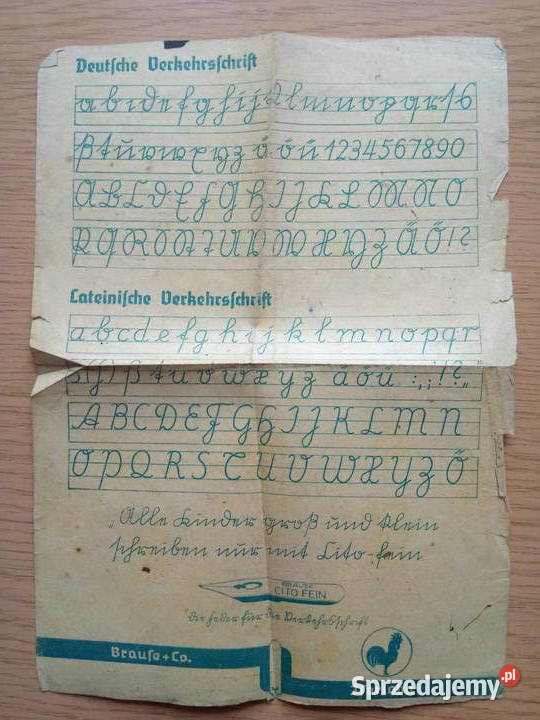 Deutsche Verkehrsschrift
a b c d e f g h i j k l m n o p q r s ß
ß t u v w x y z ä ö ü 1 2 3 4 5 6 7 8 9 0
A B C D E F G H I J K L M N O
P Q R S St T U V W X Y Z Ä Ö ! ?
Lateinische Verkehrsschrift
a b c d e f g h i j k l m n o p q r
s (ſ) ß t u v w x y z ä ö ü : , ; ! ? „
A B C D E F G H I J K L M N
O P Q R S T U V W X Y Z Ö
„Alle Kinder groß und klein
schreiben nur mit Cito-fein"
BRAUSE
CITO FEIN
"die Feder für die Verkehrsschrift"
Brause + Co.
Sprzedajemy.pl